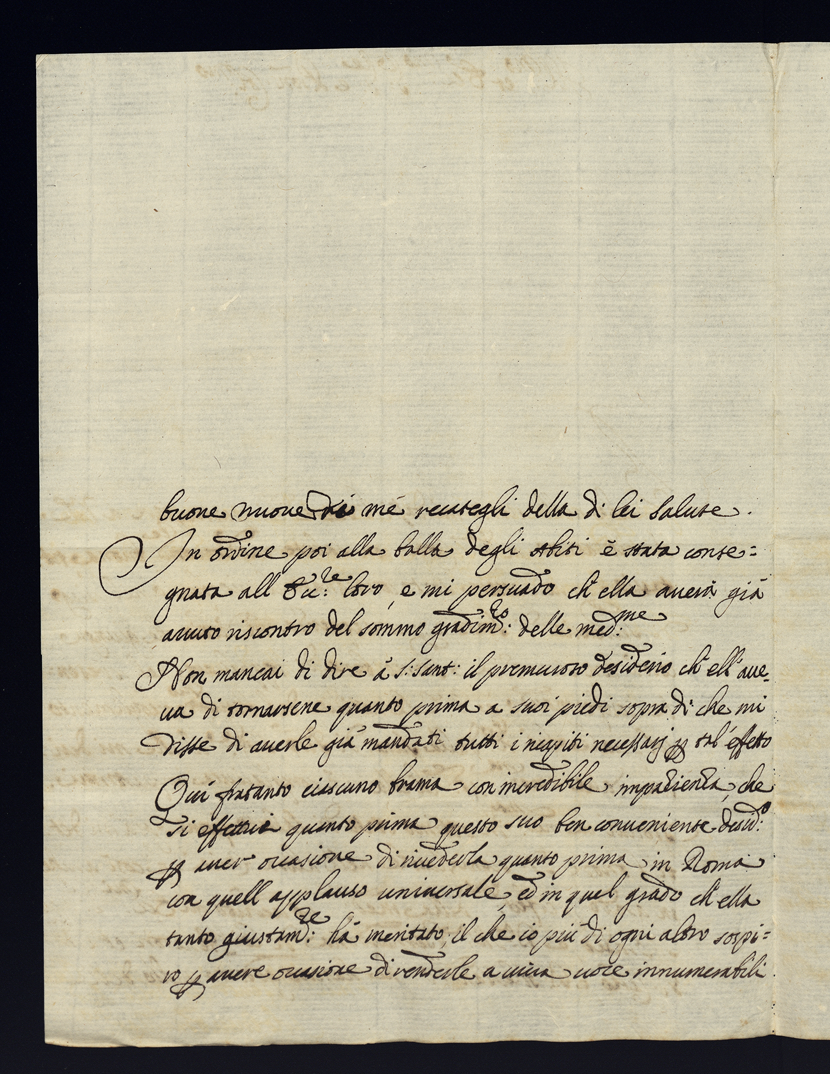 buone nuove di mé recategli della di lei Salute.
In ordine poi alla balla degli abiti è stata conse=
gnata all' loro, e mi persuado ch'ella averà già
avuto riscontro del sommo gradim:to delle med:me
Non mancai di dire à S: Sant: il premuroso desiderio ch'ell'ave=
va di tornarsene quanto prima a suoi piedi sopra di che mi
disse di averle già mandati tutti i necessarj p tal'effetto
Quì fratanto ciascuno brama con incredibile impazienza, che
si effettui quanto prima questo suo ben conveniente desid:o
p aver occasione di rivederla quanto prima in Roma
con quell'applauso universale, ed in quel grado ch'ella
tanto giustam:te hà meritato, il che io più di ogni altro sospi=
ro p avere occasione di renderle a viva voce innumerabili